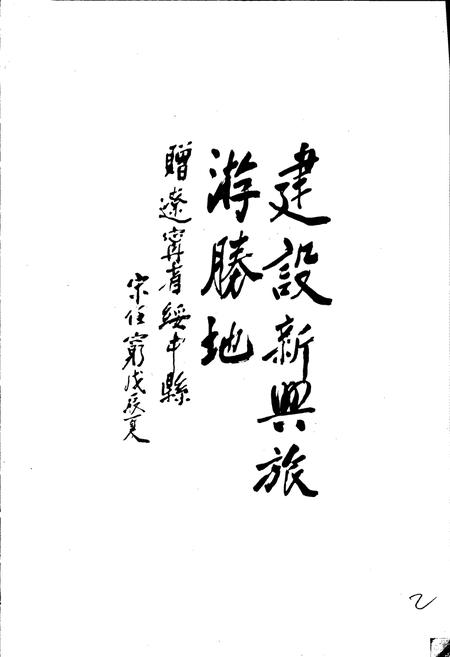 建設新興旅
游勝地
贈遼寧省綏中縣
宋任窮戊辰夏
2